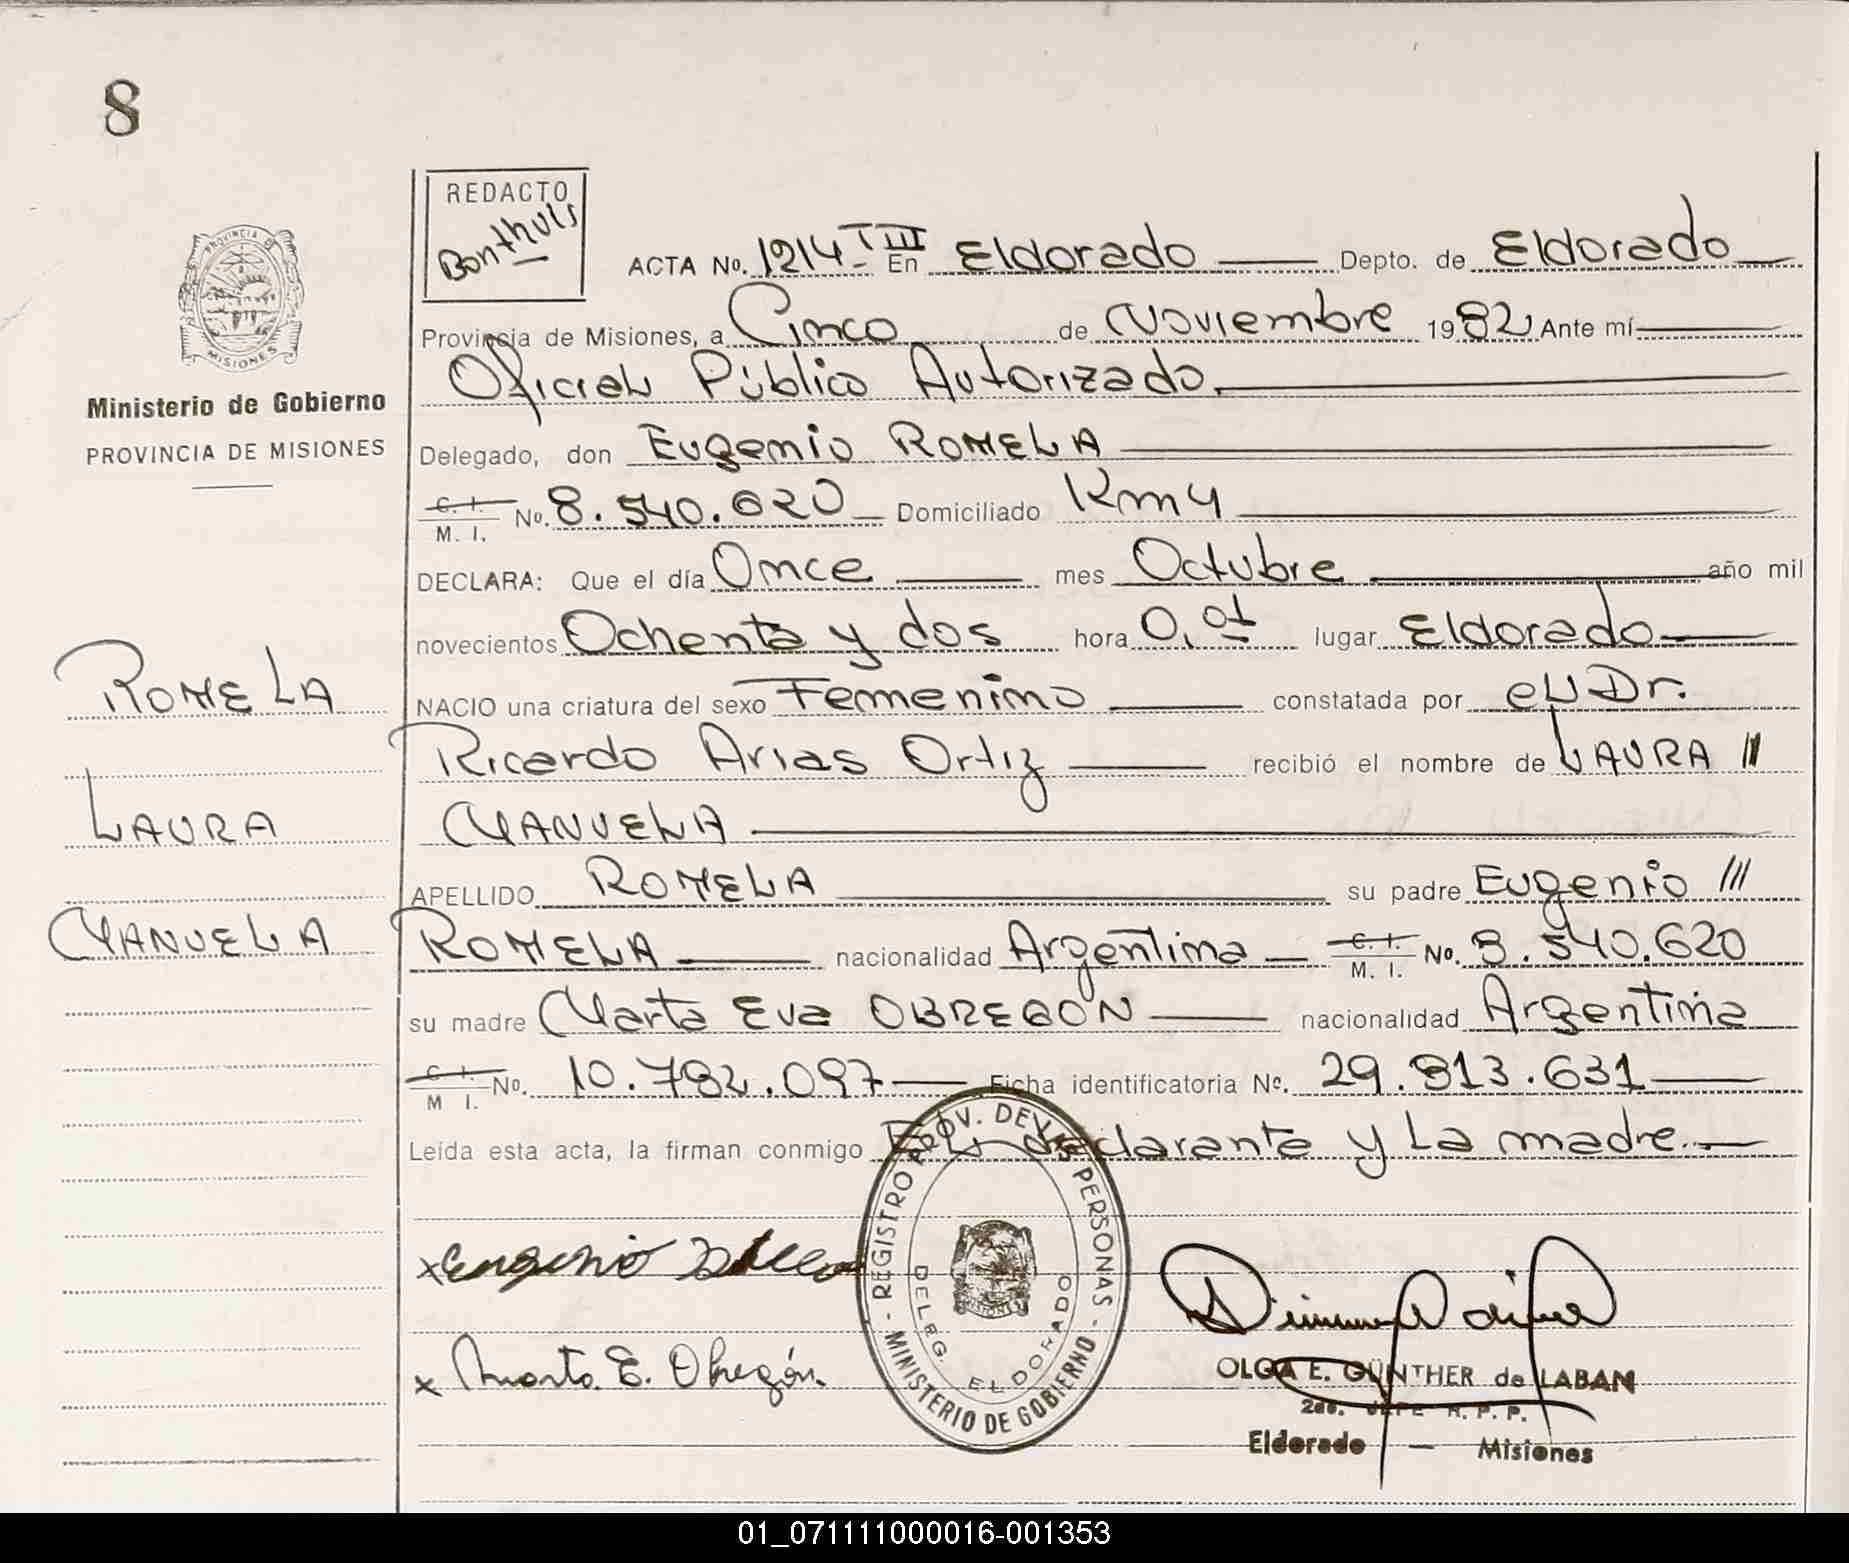 8
REDACTO
Bonthuis
ACTA No. 1214 - T III En Eldorado Depto. de Eldorado
Provincia de Misiones, a Cinco de Noviembre 1982 Ante mí
Oficial Público Autorizado.
Delegado, don Eugenio ROMELA
C. I. M. I. No. 8.540.620 Domiciliado Km 4
DECLARA: Que el día Once mes Octubre año mil
novecientos Ochenta y dos hora 0,01 lugar Eldorado
NACIO una criatura del sexo Femenino constatada por el Dr.
Ricardo Arias Ortiz recibió el nombre de LAURA //
MANUELA
APELLIDO ROMELA su padre Eugenio ///
ROMELA nacionalidad Argentina C. I. M. I. No. 8.540.620
su madre Marta Eva OBREGON nacionalidad Argentina
C. I. M I. No. 10.782.097 Ficha identificatoria No. 29.813.631
Leída esta acta, la firman conmigo El declarante y la madre.
x Eugenio
x Marta E. Obregón
REGISTRO PROV. DE LAS PERSONAS - MINISTERIO DE GOBIERNO -
DELEG. ELDORADO
OLGA E. GÜNTHER de LABAN
2do. JEFE R. P. P.
Eldorado — Misiones
PROVINCIA DE MISIONES
Ministerio de Gobierno
PROVINCIA DE MISIONES
ROMELA
LAURA
MANUELA
01_071111000016-001353